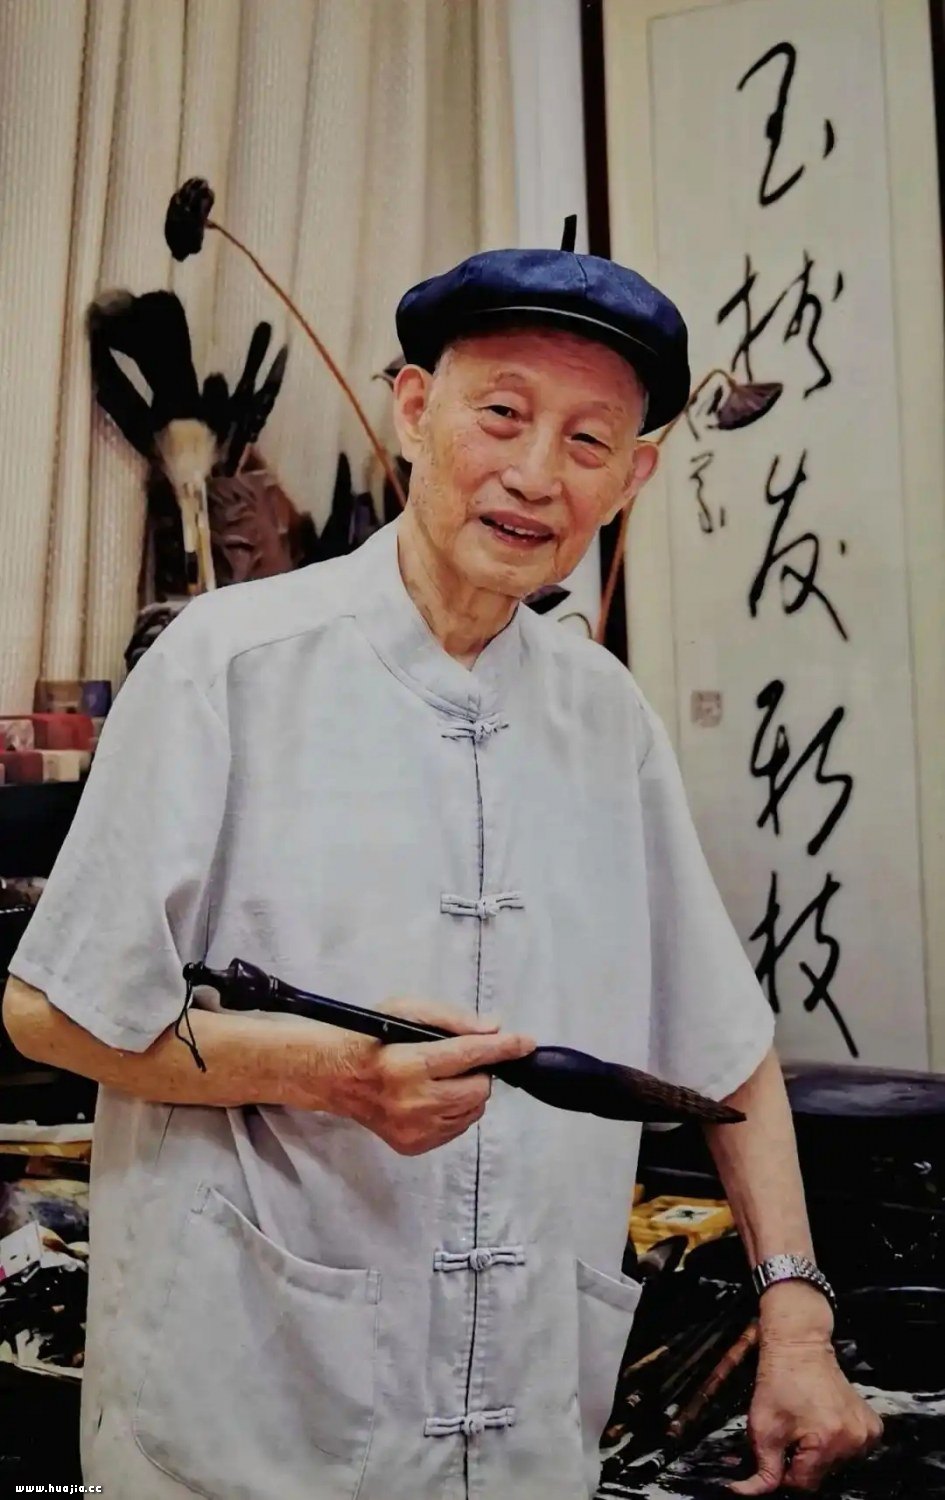 玉树发新枝
www.huajia.cc